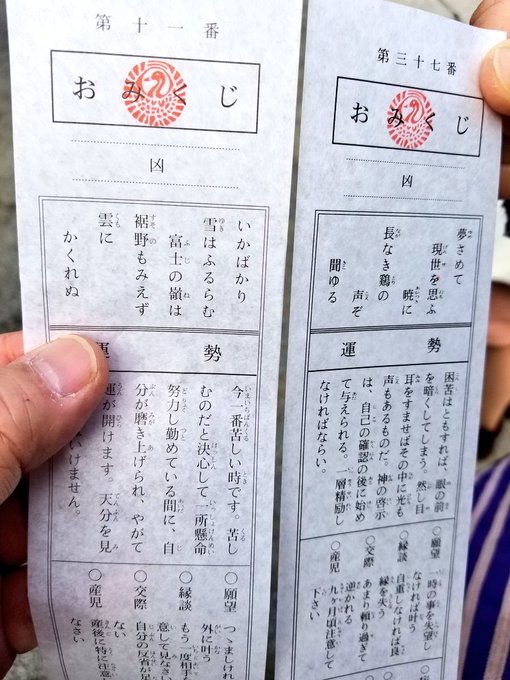 第十一番
おみくじ
凶
いかばかり
雪はふるらむ
富士の嶺は
裾野もみえず
雲に
かくれぬ
運勢
今、一番苦しい時です。苦し
むのだと決心して一所懸命
努力し勤めている間に、自
分が磨き上げられ、やがて
運が開けます。天分を見
いけません。
○願望
つゝましけれ
外に叶う
○縁談
もう一度相手を
意して見なさい
○交際
自分の反省が足
ない
○産児
産後に特に注意
なさい
第三十七番
おみくじ
凶
夢さめて
現世を思ふ
暁に
長なき鶏の
声ぞ
聞ゆる
運勢
困苦はともすれば、眼の前
を暗くしてしまう。然し目
耳をすませばその中に光も
声もあるものだ。神の啓示
は、自己の確認の後に始め
て与えられる。一層精励し
なければならい。
○願望
一時の事を失望し
なければ叶う
○縁談
自重しなければ良
縁を失う
○交際
あまり頼り過ぎて
逆かれる
○産児
九ヶ月頃注意して
下さい